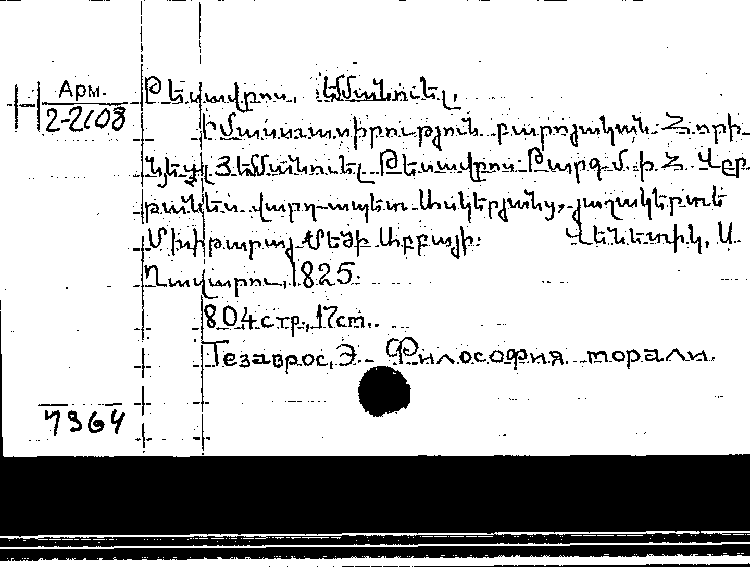 Арм.
2-2108
Թեսավրոս, Եմմանուել.
Իմաստասիրութիւն բարոյական Հօրի
Եմմանուել Թեսավրոս Թարգմ. ի Հ. Վըր
թանես վարդապետ Ասկերյանց, յաղակերտե
Մխիթարայ Մեծի Աբբայի. Վենետիկ, Ս.
Ղազարու, 1825.
804 стр., 17 cm.
Тезаврос, Э. Философия морали.
7964